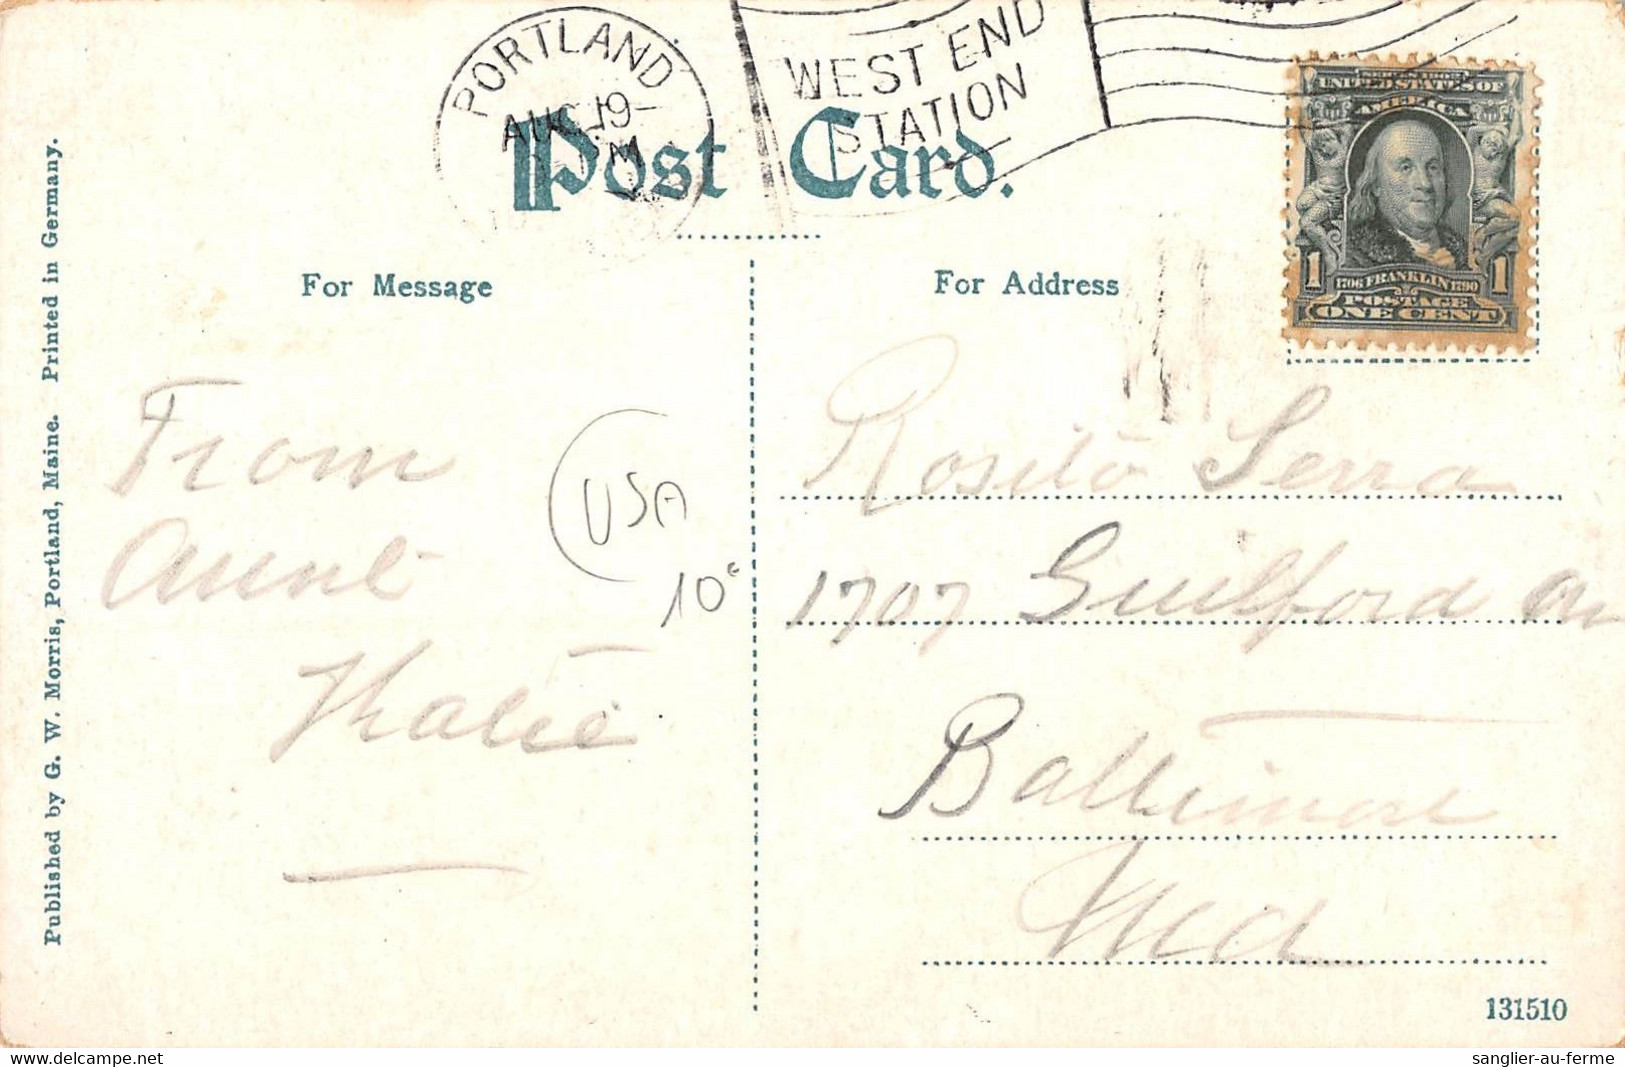 PORTLAND
AUG 19
WEST END
STATION
Post Card.
UNITED STATES OF
AMERICA
1 1706 FRANKLIN 1790 1
POSTAGE
ONE CENT
For Message
For Address
From
Aunt
Katie
USA
10€
Serra
1707 Guilford
Baltimore
Md
Published by G. W. Morris, Portland, Maine. Printed in Germany.
131510
www.delcampe.net
sanglier-au-ferme